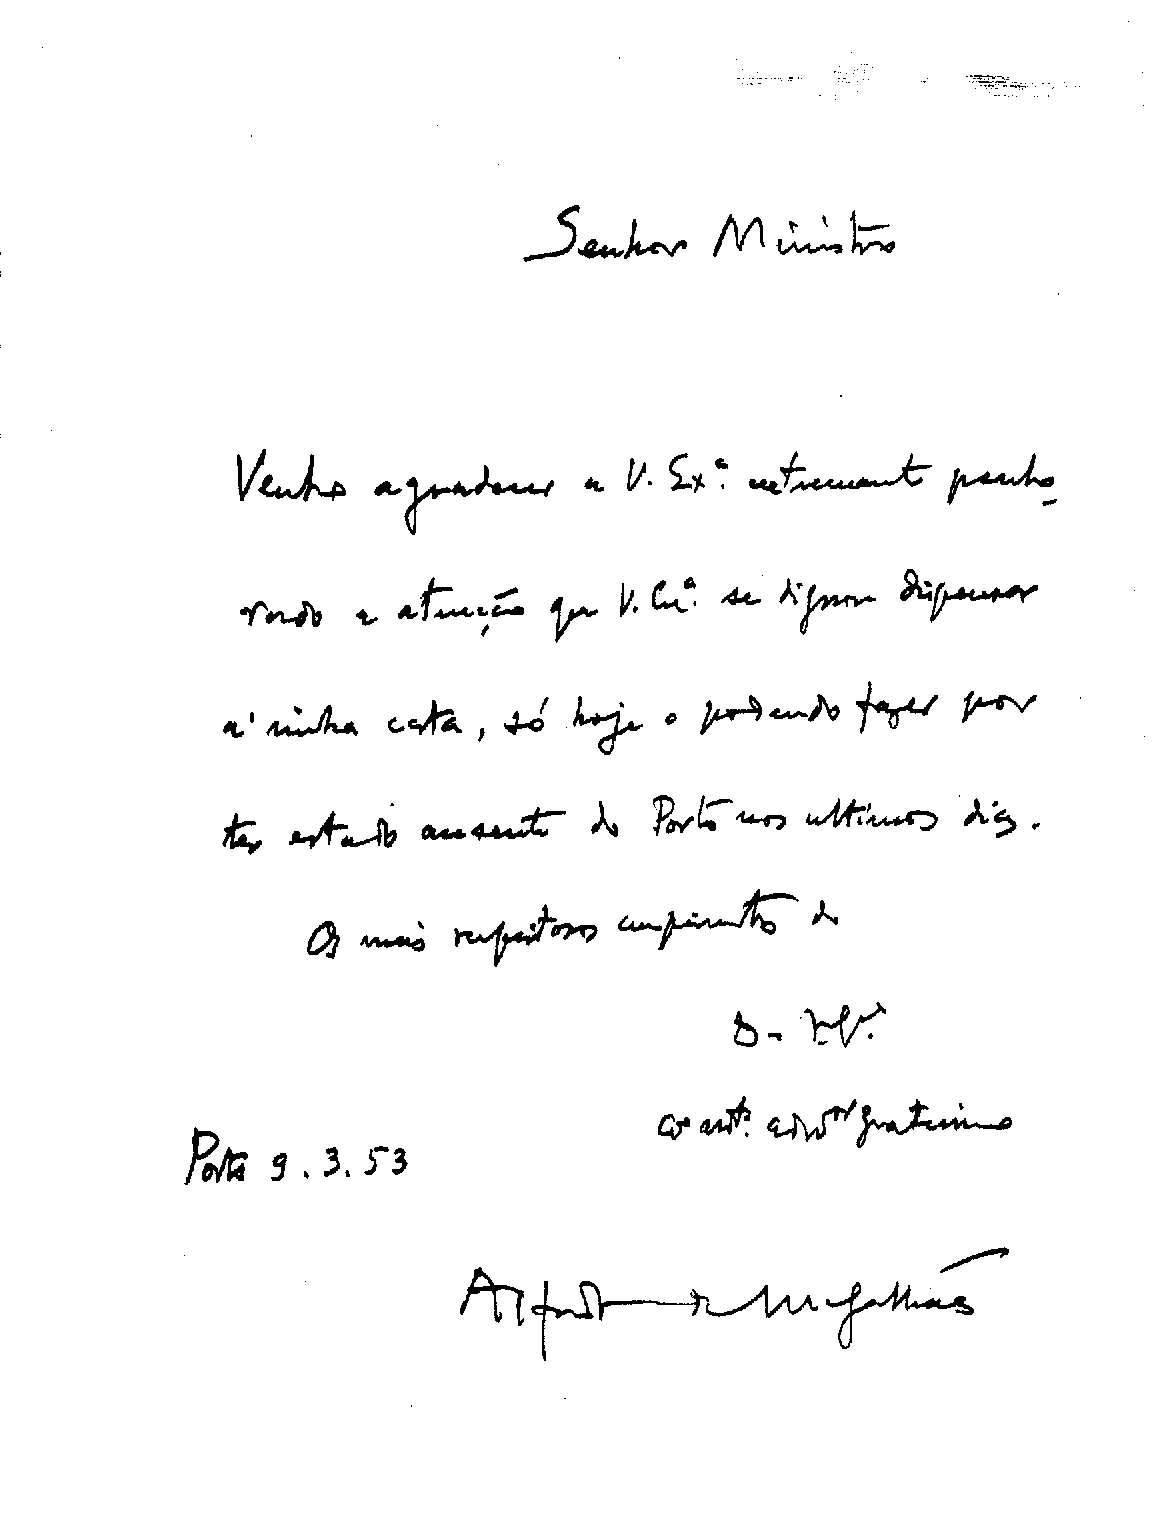 Senhor Ministro
Venho agradecer a V. Exª. extremamente penho-
rado a atenção que V. Exª. se dignou dispensar
a' minha carta, só hoje o podendo fazer por
ter estado ausente do Porto nos ultimos dias.
Os mais respeitosos cumprimentos do
De V. Exª.
adºr gratissimo
Porto 9.3.53
Alfredo de Magalhães